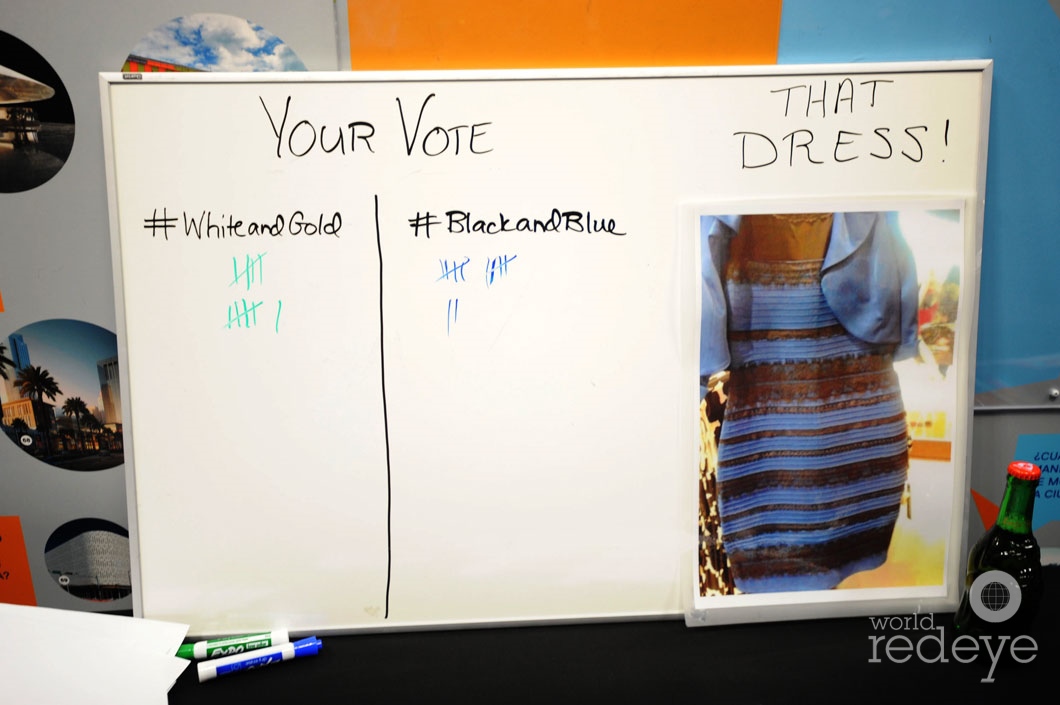 YOUR VOTE
THAT
DRESS!
#WhiteandGold
#BlackandBlue
EXPO
¿CUÁ
MAN
E M
A CIU
A?
world
redeye